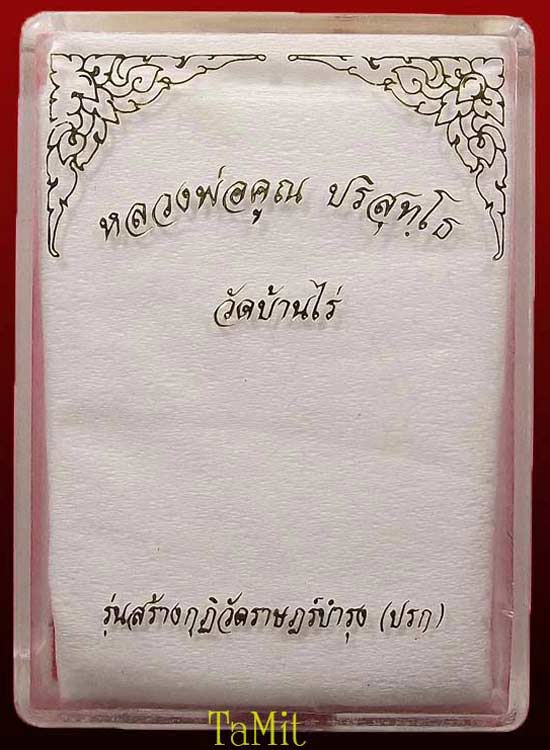 หลวงพ่อคูณ ปริสุทฺโธ
วัดบ้านไร่
รุ่นสร้างกุฏิวัดราษฎร์บำรุง (ปรก)
TaMit